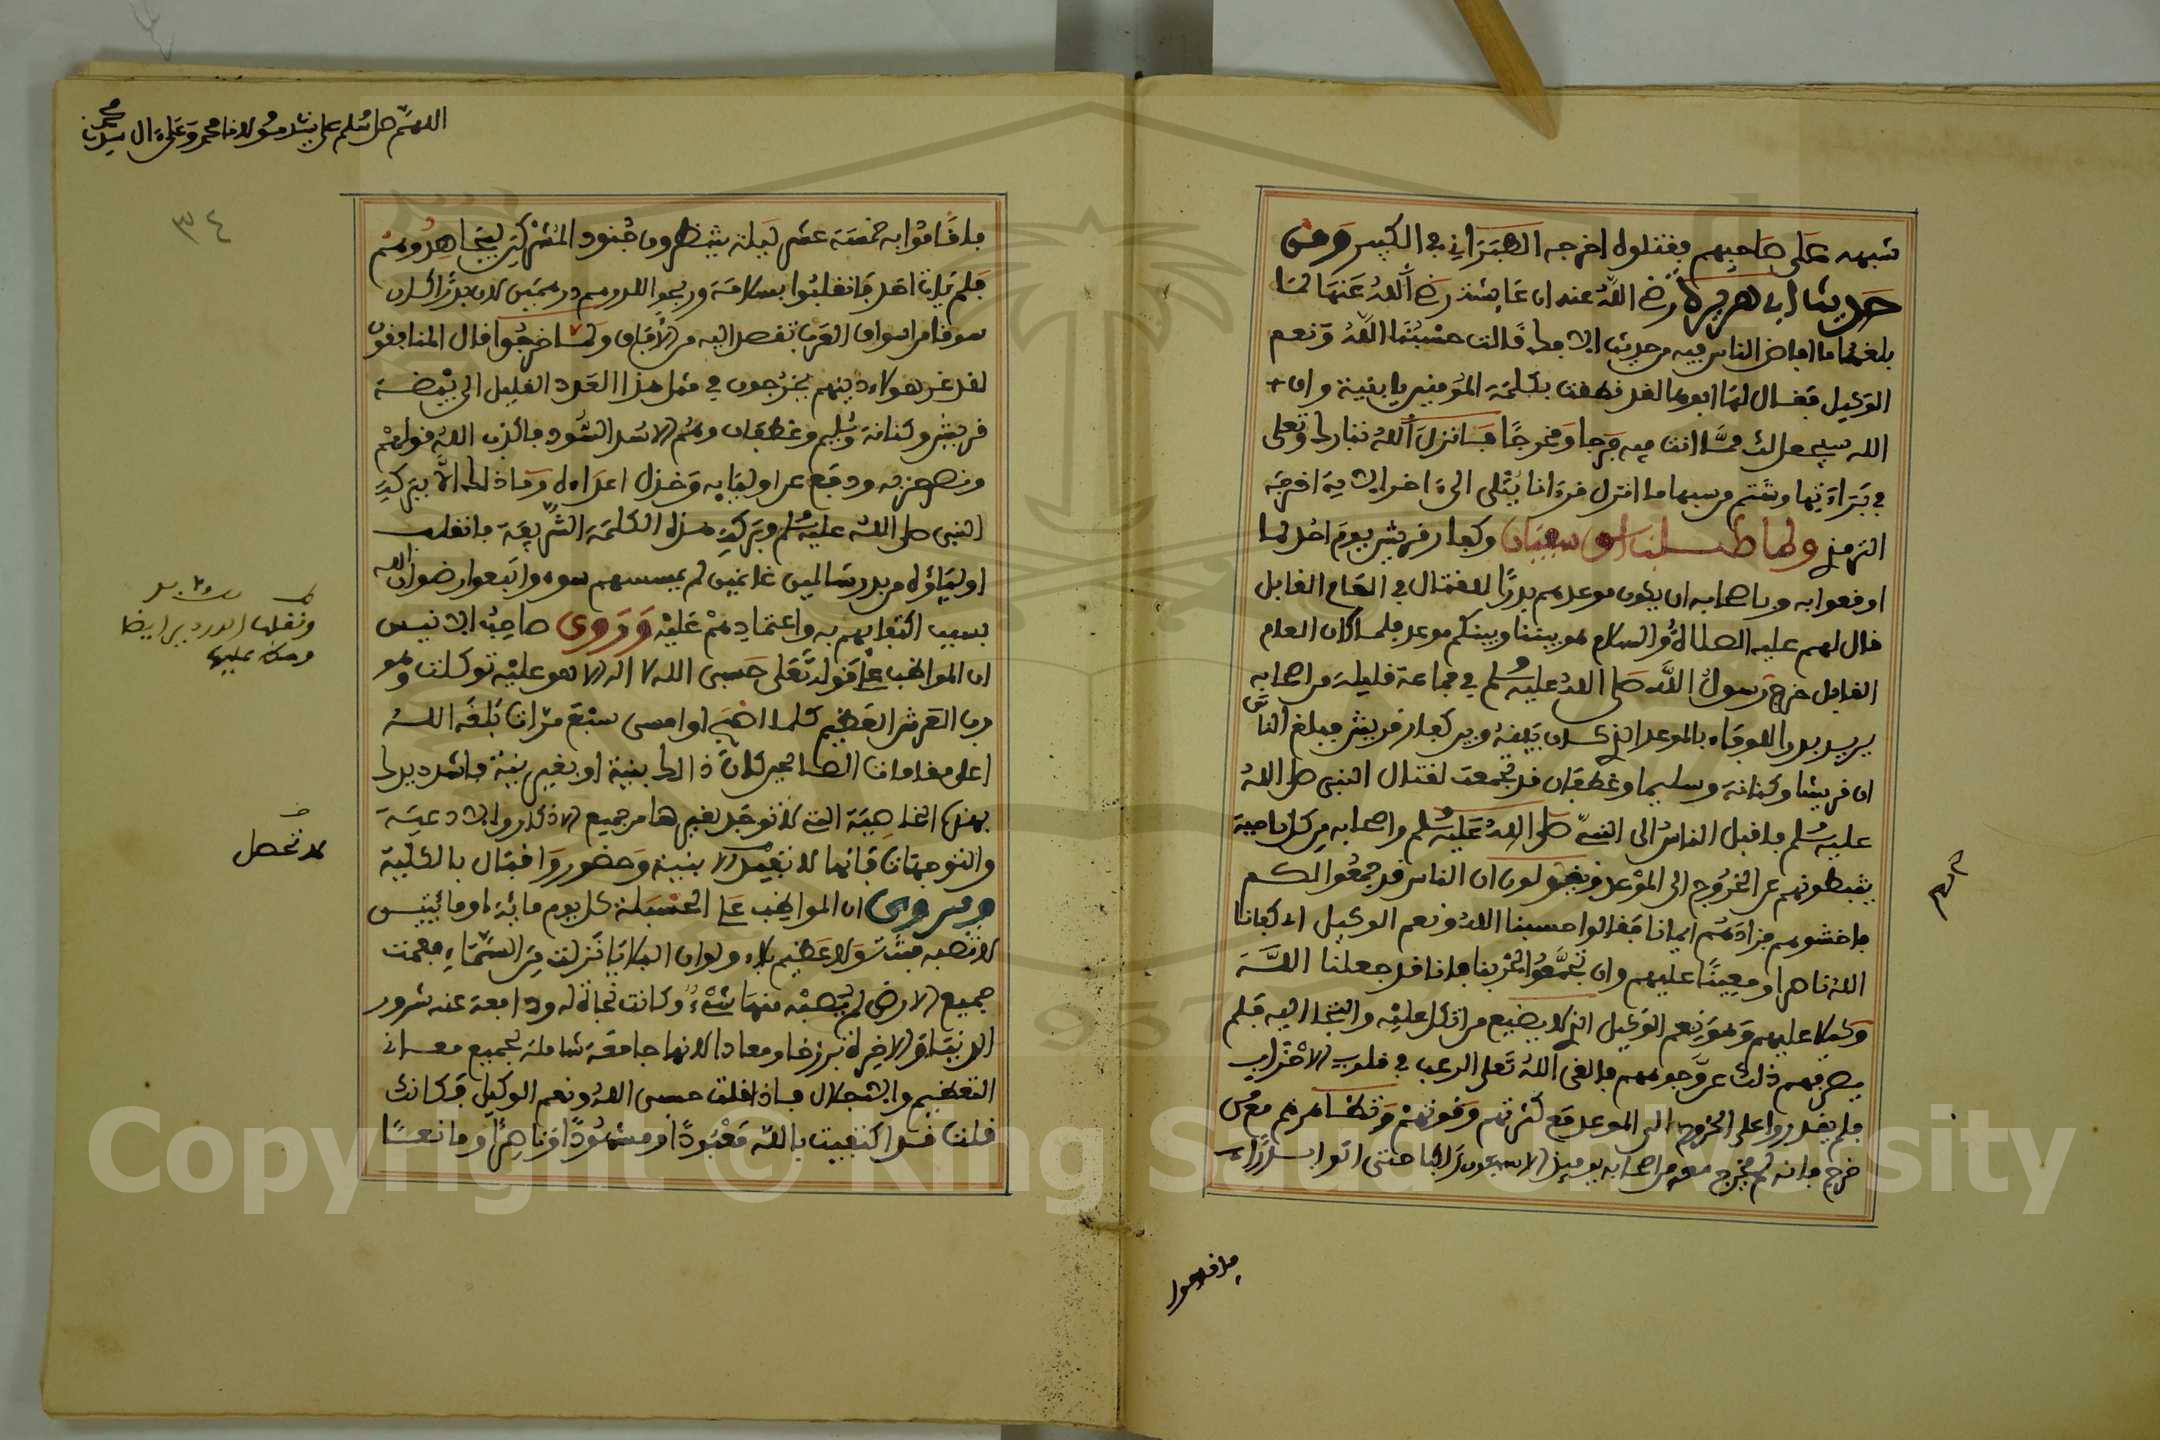 شبهه على صاحبهم فقتلوه اخرجه الطبراني في الكبير ومن
حديث ابي هريرة رضي الله عنه ان عائشة رضي الله عنها لما
بلغها ما افاض الناس فيه من حديث الافك قالت حسبنا الله ونعم
الوكيل فقال لها ابوها لقد نطقت بكلمة المؤمنين يا بنية وان
الله سيجعل لك مما انت فيه فرجا ومخرجا فانزل الله تبارك وتعلى
في براءتها وشتم من سبها ما انزل قرءانا يتلى الى ءاخر الاية اخرجه
الترمذي ولما طلب ابو سفيان وكفار قريش يوم احد لما
اوقعوا به وباصحابه ان يكون موعدهم بدرًا للقتال في العام القابل
قال لهم عليه الصلاة والسلام هو بيننا وبينكم موعد فلما كان العام
القابل خرج رسول الله صلى الله عليه وسلم في جماعة قليلة من اصحابه
يريد بدرا للوفاء بالموعد الذي كان بينه وبين كفار قريش فبلغ الناس
ان قريشا وكنانة وسليما وغطفان قد تجمعت لقتال النبي صلى الله
عليه وسلم فاقبل الناس الى النبي صلى الله عليه وسلم واصحابه من كل ناحية
يثبطونهم عن الخروج الى الموعد ويقولون ان الناس قد جمعوا لكم
فاخشوهم فزادهم ايمانا فقالوا حسبنا الله ونعم الوكيل اي كفانا
الله ناصرا ومعينًا عليهم وان تجمعوا لحربنا فانا قد جعلنا الله
وكيلا عليهم وهو نعم الوكيل الذي لا يضيع من اتكل عليه والتجا اليه فلم
يصرفهم ذلك عن وجوههم فالقى الله تعلى الرعب في قلوب الاحزاب
فلم يقدروا على الخروج الى الموعد مع كثرتهم وقوتهم وتظاهرهم مع من
خرج فانه لم يخرج معه من اصحابه يوميذ الا سبعون راكبا حتى اتوا بدرًا
فاقاموا
اللهم صل وسلم على سيدنا ومولانا محمد وعلى ءال سيدنا محمد
٣٤
فاقاموا به خمسة عشر ليلة ينتظرون جنود المشركين ليجاهدوهم
فلم يات احد فانقلبوا بسلامة وربحوا الدرهم درهمين لان بدرًا كان
سوقا من اسواق العرب تقصد اليه من الافاق ولما خرجوا قال المنافقون
لقد غر هولاء دينهم يخرجون في مثل هذا العدد القليل الى بيضة
قريش وكنانة وسليم وغطفان وهم الاسد السود فاكذب الله قولهم
ونصر حزبه ودفع عن اوليايه وخذل اعداءه وما ذلك الا ببركة
النبي صلى الله عليه وسلم وبركة هذه الكلمة الشريفة فانقلب
اولياؤه من بدر سالمين غانمين لم يمسسهم سوء واتبعوا رضوان الله
بسبب اكتفايهم به واعتمادهم عليه وروى صاحب الانيس
ان المواظب على قوله تعلى حسبي الله لا اله الا هو عليه توكلت وهو
رب العرش العظيم كلما اصبح او امسى سبع مرات بلغه الله
اعلى مقامات الصالحين كان ذالك بنية او بغير نية فاشدد يدك
بهذه الخاصية التي لا توجد لغيرها من جميع الاذكار والادعية
والتوجهات فانها لا تقبل الا بنية وحضور واقبال بالكلية
وروى ان المواظب على الحسبلة كل يوم مائة او مائتين
لا تصبه فتنة ولا عظيم بلاء ولو ان البلايا نزلت من السماء فعمت
جميع الارض لم يصبه منها شيء وكانت نجاة له ودافعة عنه شرور
الدنيا والاخرة برزخا ومعادا لانها جامعة شاملة لجميع معاني
التعظيم والاجلال فاذا قلت حسبي الله ونعم الوكيل فكانك
قلت قد اكتفيت بالله معبودًا ومشهودًا وناصرًا ومانعًا
ونقلها الدردير ايضا
لا تحصل
Copyright © King Saud University
1957